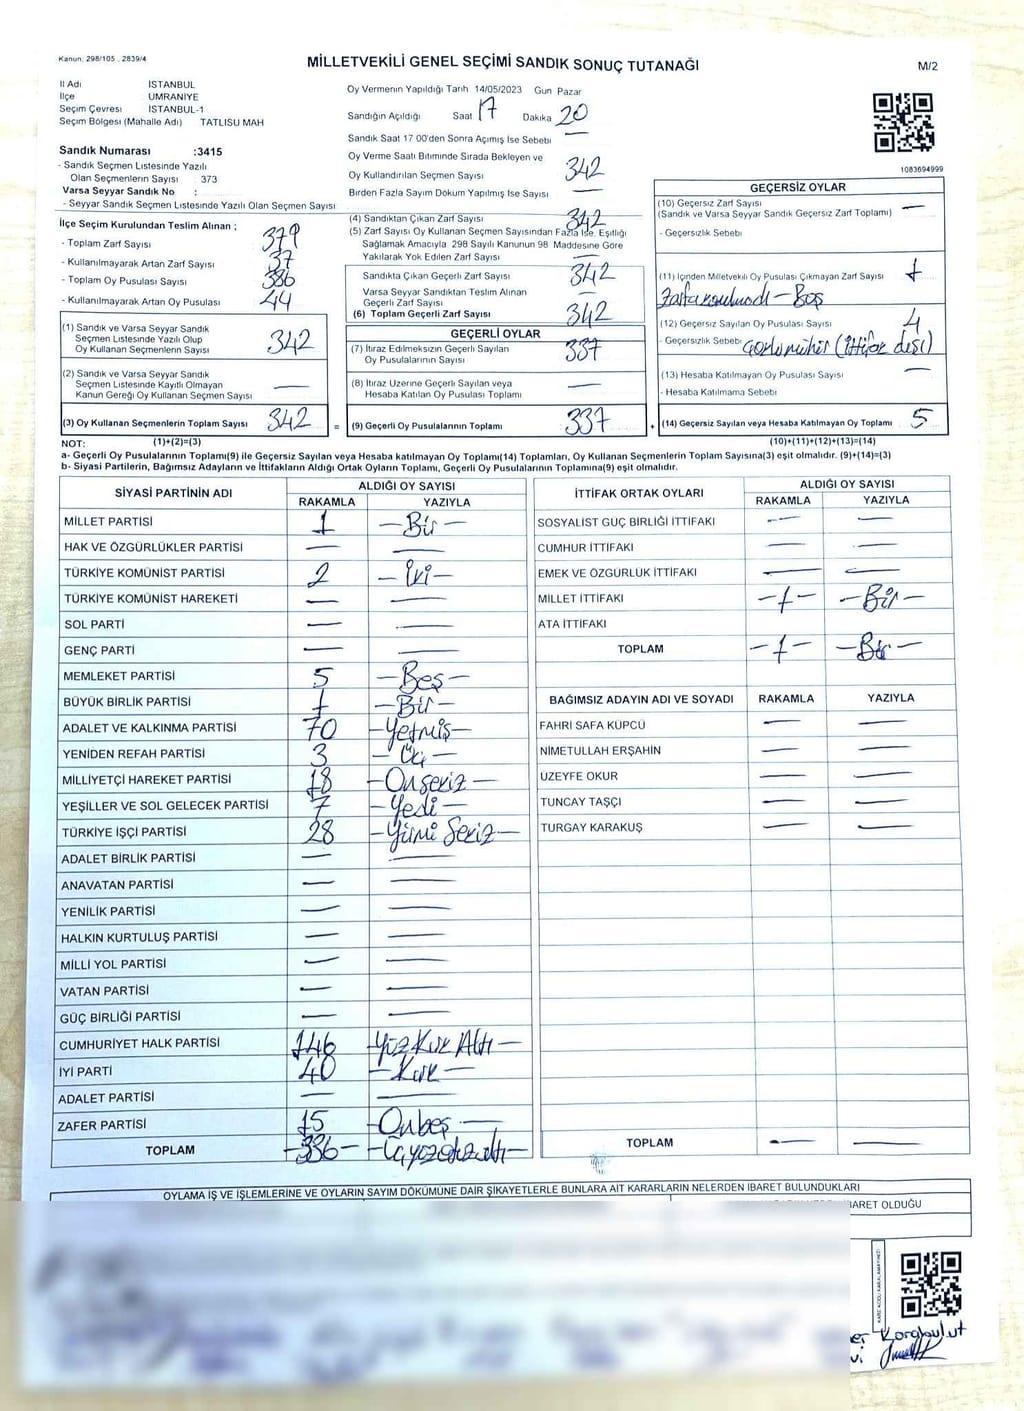 Kanun: 298/105 , 2839/4
MİLLETVEKİLİ GENEL SEÇİMİ SANDIK SONUÇ TUTANAĞI
M/2
İl Adı İSTANBUL
İlçe ÜMRANİYE
Seçim Çevresi İSTANBUL-1
Seçim Bölgesi (Mahalle Adı) TATLISU MAH
Sandık Numarası :3415
- Sandık Seçmen Listesinde Yazılı
Olan Seçmenlerin Sayısı 373
Varsa Seyyar Sandık No :
- Seyyar Sandık Seçmen Listesinde Yazılı Olan Seçmen Sayısı
İlçe Seçim Kurulundan Teslim Alınan ;
- Toplam Zarf Sayısı 379
- Kullanılmayarak Artan Zarf Sayısı 37
- Toplam Oy Pusulası Sayısı 386
- Kullanılmayarak Artan Oy Pusulası 44
(1) Sandık ve Varsa Seyyar Sandık
Seçmen Listesinde Yazılı Olup
Oy Kullanan Seçmenlerin Sayısı 342
(2) Sandık ve Varsa Seyyar Sandık
Seçmen Listesinde Kayıtlı Olmayan
Kanun Gereği Oy Kullanan Seçmen Sayısı —
(3) Oy Kullanan Seçmenlerin Toplam Sayısı 342
Oy Vermenin Yapıldığı Tarih 14/05/2023 Gün Pazar
Sandığın Açıldığı Saat 17 Dakika 20
Sandık Saat 17 00'den Sonra Açılmış İse Sebebi —
Oy Verme Saati Bitiminde Sırada Bekleyen ve
Oy Kullandırılan Seçmen Sayısı 342
Birden Fazla Sayım Döküm Yapılmış İse Sayısı —
(4) Sandıktan Çıkan Zarf Sayısı 342
(5) Zarf Sayısı Oy Kullanan Seçmen Sayısından Fazla İse, Eşitliği
Sağlamak Amacıyla 298 Sayılı Kanunun 98 Maddesine Göre
Yakılarak Yok Edilen Zarf Sayısı —
Sandıkta Çıkan Geçerli Zarf Sayısı 342
Varsa Seyyar Sandıktan Teslim Alınan
Geçerli Zarf Sayısı —
(6) Toplam Geçerli Zarf Sayısı 342
GEÇERLİ OYLAR
(7) İtiraz Edilmeksizin Geçerli Sayılan
Oy Pusulalarının Sayısı 337
(8) İtiraz Üzerine Geçerli Sayılan veya
Hesaba Katılan Oy Pusulası Toplamı —
= (9) Geçerli Oy Pusulalarının Toplamı 337
1083694999
GEÇERSİZ OYLAR
(10) Geçersiz Zarf Sayısı —
(Sandık ve Varsa Seyyar Sandık Geçersiz Zarf Toplamı)
- Geçersizlik Sebebi
(11) İçinden Milletvekili Oy Pusulası Çıkmayan Zarf Sayısı 1
Boş
(12) Geçersiz Sayılan Oy Pusulası Sayısı 4
- Geçersizlik Sebebi (ittifak dışı)
(13) Hesaba Katılmayan Oy Pusulası Sayısı —
- Hesaba Katılmama Sebebi
+ (14) Geçersiz Sayılan veya Hesaba Katılmayan Oy Toplamı 5
NOT: (1)+(2)=(3) (10)+(11)+(12)+(13)=(14)
a- Geçerli Oy Pusulalarının Toplamı(9) ile Geçersiz Sayılan veya Hesaba katılmayan Oy Toplamı(14) Toplamları, Oy Kullanan Seçmenlerin Toplam Sayısına(3) eşit olmalıdır. (9)+(14)=(3)
b- Siyasi Partilerin, Bağımsız Adayların ve İttifakların Aldığı Ortak Oyların Toplamı, Geçerli Oy Pusulalarının Toplamına(9) eşit olmalıdır.
SİYASİ PARTİNİN ADI ALDIĞI OY SAYISI
RAKAMLA YAZIYLA
MİLLET PARTİSİ 1 —Bir—
HAK VE ÖZGÜRLÜKLER PARTİSİ — —
TÜRKİYE KOMÜNİST PARTİSİ 2 —İki—
TÜRKİYE KOMÜNİST HAREKETİ — —
SOL PARTİ — —
GENÇ PARTİ — —
MEMLEKET PARTİSİ 5 —Beş—
BÜYÜK BİRLİK PARTİSİ 1 —Bir—
ADALET VE KALKINMA PARTİSİ 70 —Yetmiş—
YENİDEN REFAH PARTİSİ 3 —Üç—
MİLLİYETÇİ HAREKET PARTİSİ 18 —Onsekiz—
YEŞİLLER VE SOL GELECEK PARTİSİ 7 —Yedi—
TÜRKİYE İŞÇİ PARTİSİ 28 —Yirmi Sekiz—
ADALET BİRLİK PARTİSİ — —
ANAVATAN PARTİSİ — —
YENİLİK PARTİSİ — —
HALKIN KURTULUŞ PARTİSİ — —
MİLLİ YOL PARTİSİ — —
VATAN PARTİSİ — —
GÜÇ BİRLİĞİ PARTİSİ — —
CUMHURİYET HALK PARTİSİ 146 —Yüz Kırk Altı—
İYİ PARTİ 40 —Kırk—
ADALET PARTİSİ — —
ZAFER PARTİSİ 15 —Onbeş—
TOPLAM —336— —Üçyüzotuzaltı—
İTTİFAK ORTAK OYLARI ALDIĞI OY SAYISI
RAKAMLA YAZIYLA
SOSYALİST GÜÇ BİRLİĞİ İTTİFAKI — —
CUMHUR İTTİFAKI — —
EMEK VE ÖZGÜRLÜK İTTİFAKI — —
MİLLET İTTİFAKI —1— —Bir—
ATA İTTİFAKI
TOPLAM —1— —Bir—
BAĞIMSIZ ADAYIN ADI VE SOYADI RAKAMLA YAZIYLA
FAHRİ SAFA KÜPCÜ — —
NİMETULLAH ERŞAHİN — —
ÜZEYFE OKUR — —
TUNCAY TAŞÇI — —
TURGAY KARAKUŞ — —
TOPLAM — —
OYLAMA İŞ VE İŞLEMLERİNE VE OYLARIN SAYIM DÖKÜMÜNE DAİR ŞİKAYETLERLE BUNLARA AİT KARARLARIN NELERDEN İBARET BULUNDUKLARI
İBARET OLDUĞU
KARE KODU KARALAMAYINIZ!